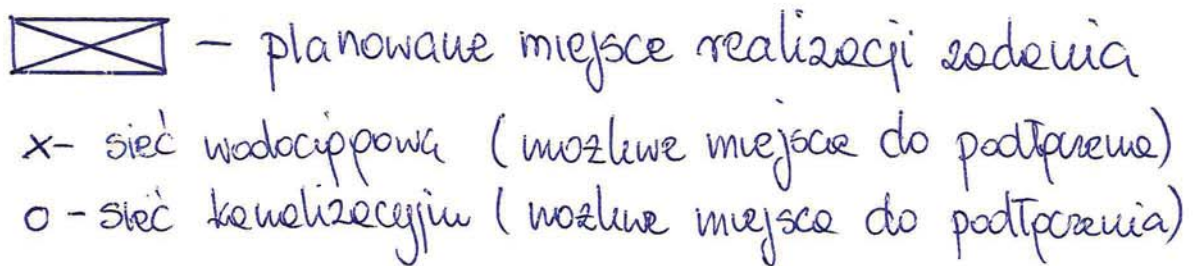 – planowane miejsce realizacji zadania
x- sieć wodociągowa (możliwe miejsce do podłączenia)
o - sieć kanalizacyjna (możliwe miejsca do podłączenia)